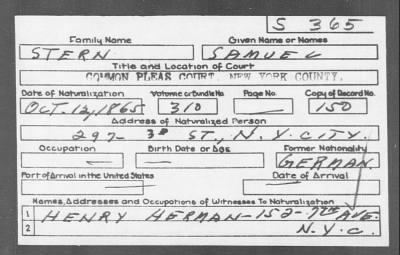 S 365
Family Name Given Name or Names
STERN SAMUEL
Title and Location of Court
COMMON PLEAS COURT, NEW YORK COUNTY.
Date of Naturalization Volume or Bundle No. Page No. Copy of Record No.
OCT. 12, 1865 310 — 150
Address of Naturalized Person
297- 3D ST., N.Y. CITY.
Occupation Birth Date or Age Former Nationality
— — GERMAN.
Port of Arrival in the United States Date of Arrival
— —
Names, Addresses and Occupations of Witnesses To Naturalization
1 HENRY HERMAN - 152 - 7TH AVE.
2 N.Y.C.